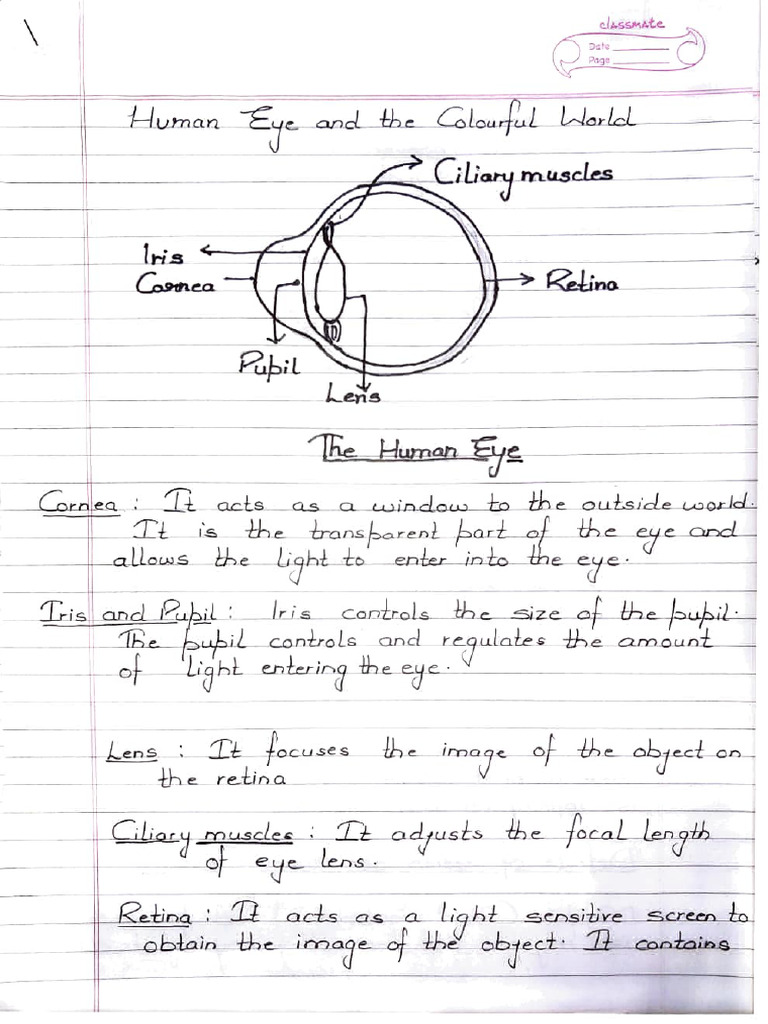 classmate
Date
Page
Human Eye and the Colourful World
Ciliary muscles
Iris
Cornea
Retina
Pupil
Lens
The Human Eye
Cornea : It acts as a window to the outside world.
It is the transparent part of the eye and
allows the light to enter into the eye.
Iris and Pupil : Iris controls the size of the pupil.
The pupil controls and regulates the amount
of light entering the eye.
Lens : It focuses the image of the object on
the retina
Ciliary muscles : It adjusts the focal length
of eye lens.
Retina : It acts as a light sensitive screen to
obtain the image of the object. It contains